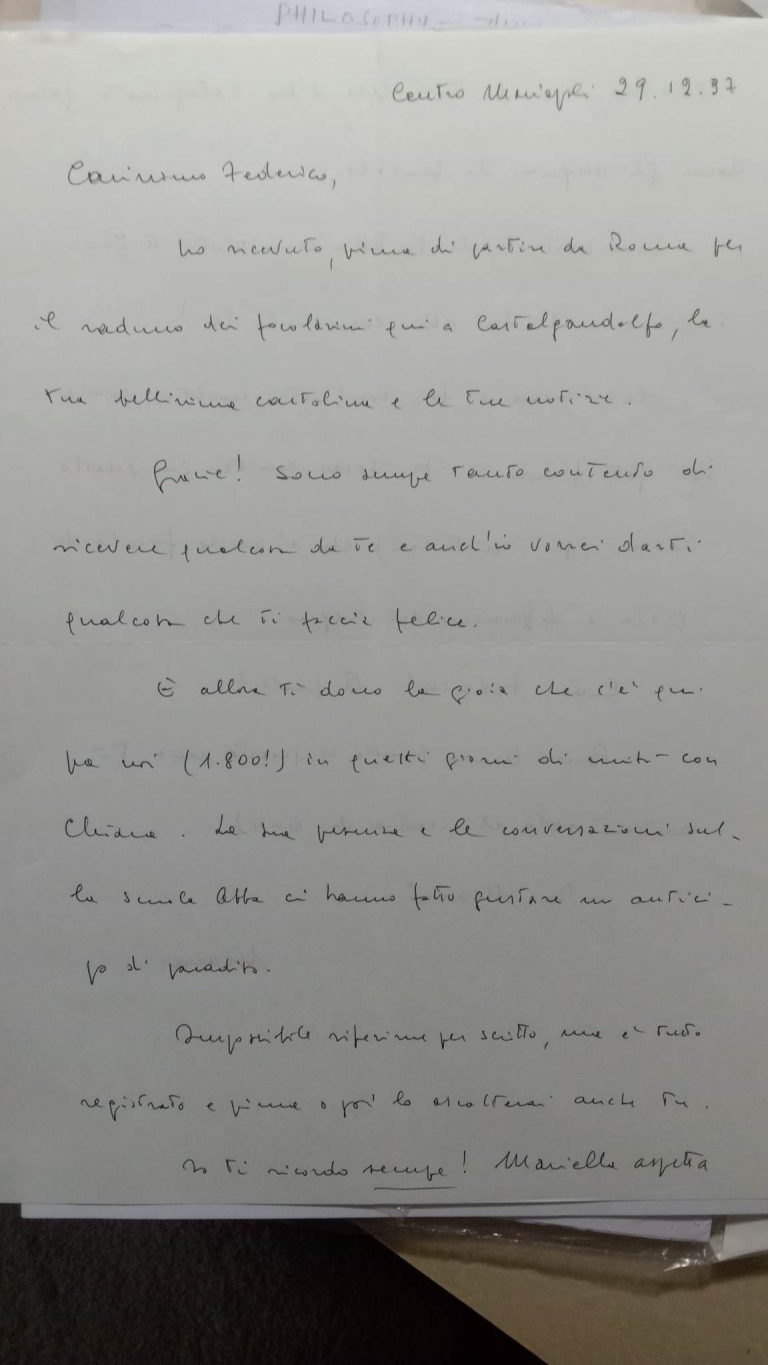 PHILOSOPHY -
Centro Mariapoli 29.12.97
Carissimo Federico,
ho ricevuto, prima di partire da Roma per
il raduno dei focolarini qui a Castelgandolfo, la
tua bellissima cartolina e le tue notizie.
Grazie! Sono sempre tanto contento di
ricevere qualcosa da te e anch'io vorrei darti
qualcosa che ti faccia felice.
E allora ti dono la gioia che c'è qui
fra noi (1.800!) in questi giorni di unità con
Chiara. La sua presenza e le conversazioni sul-
la scuola Abba ci hanno fatto gustare un antici-
po di paradiso.
Impossibile riferirne per scritto, ma è tutto
registrato e prima o poi lo ascolterai anche tu.
Io ti ricordo sempre! Mariella aspetta